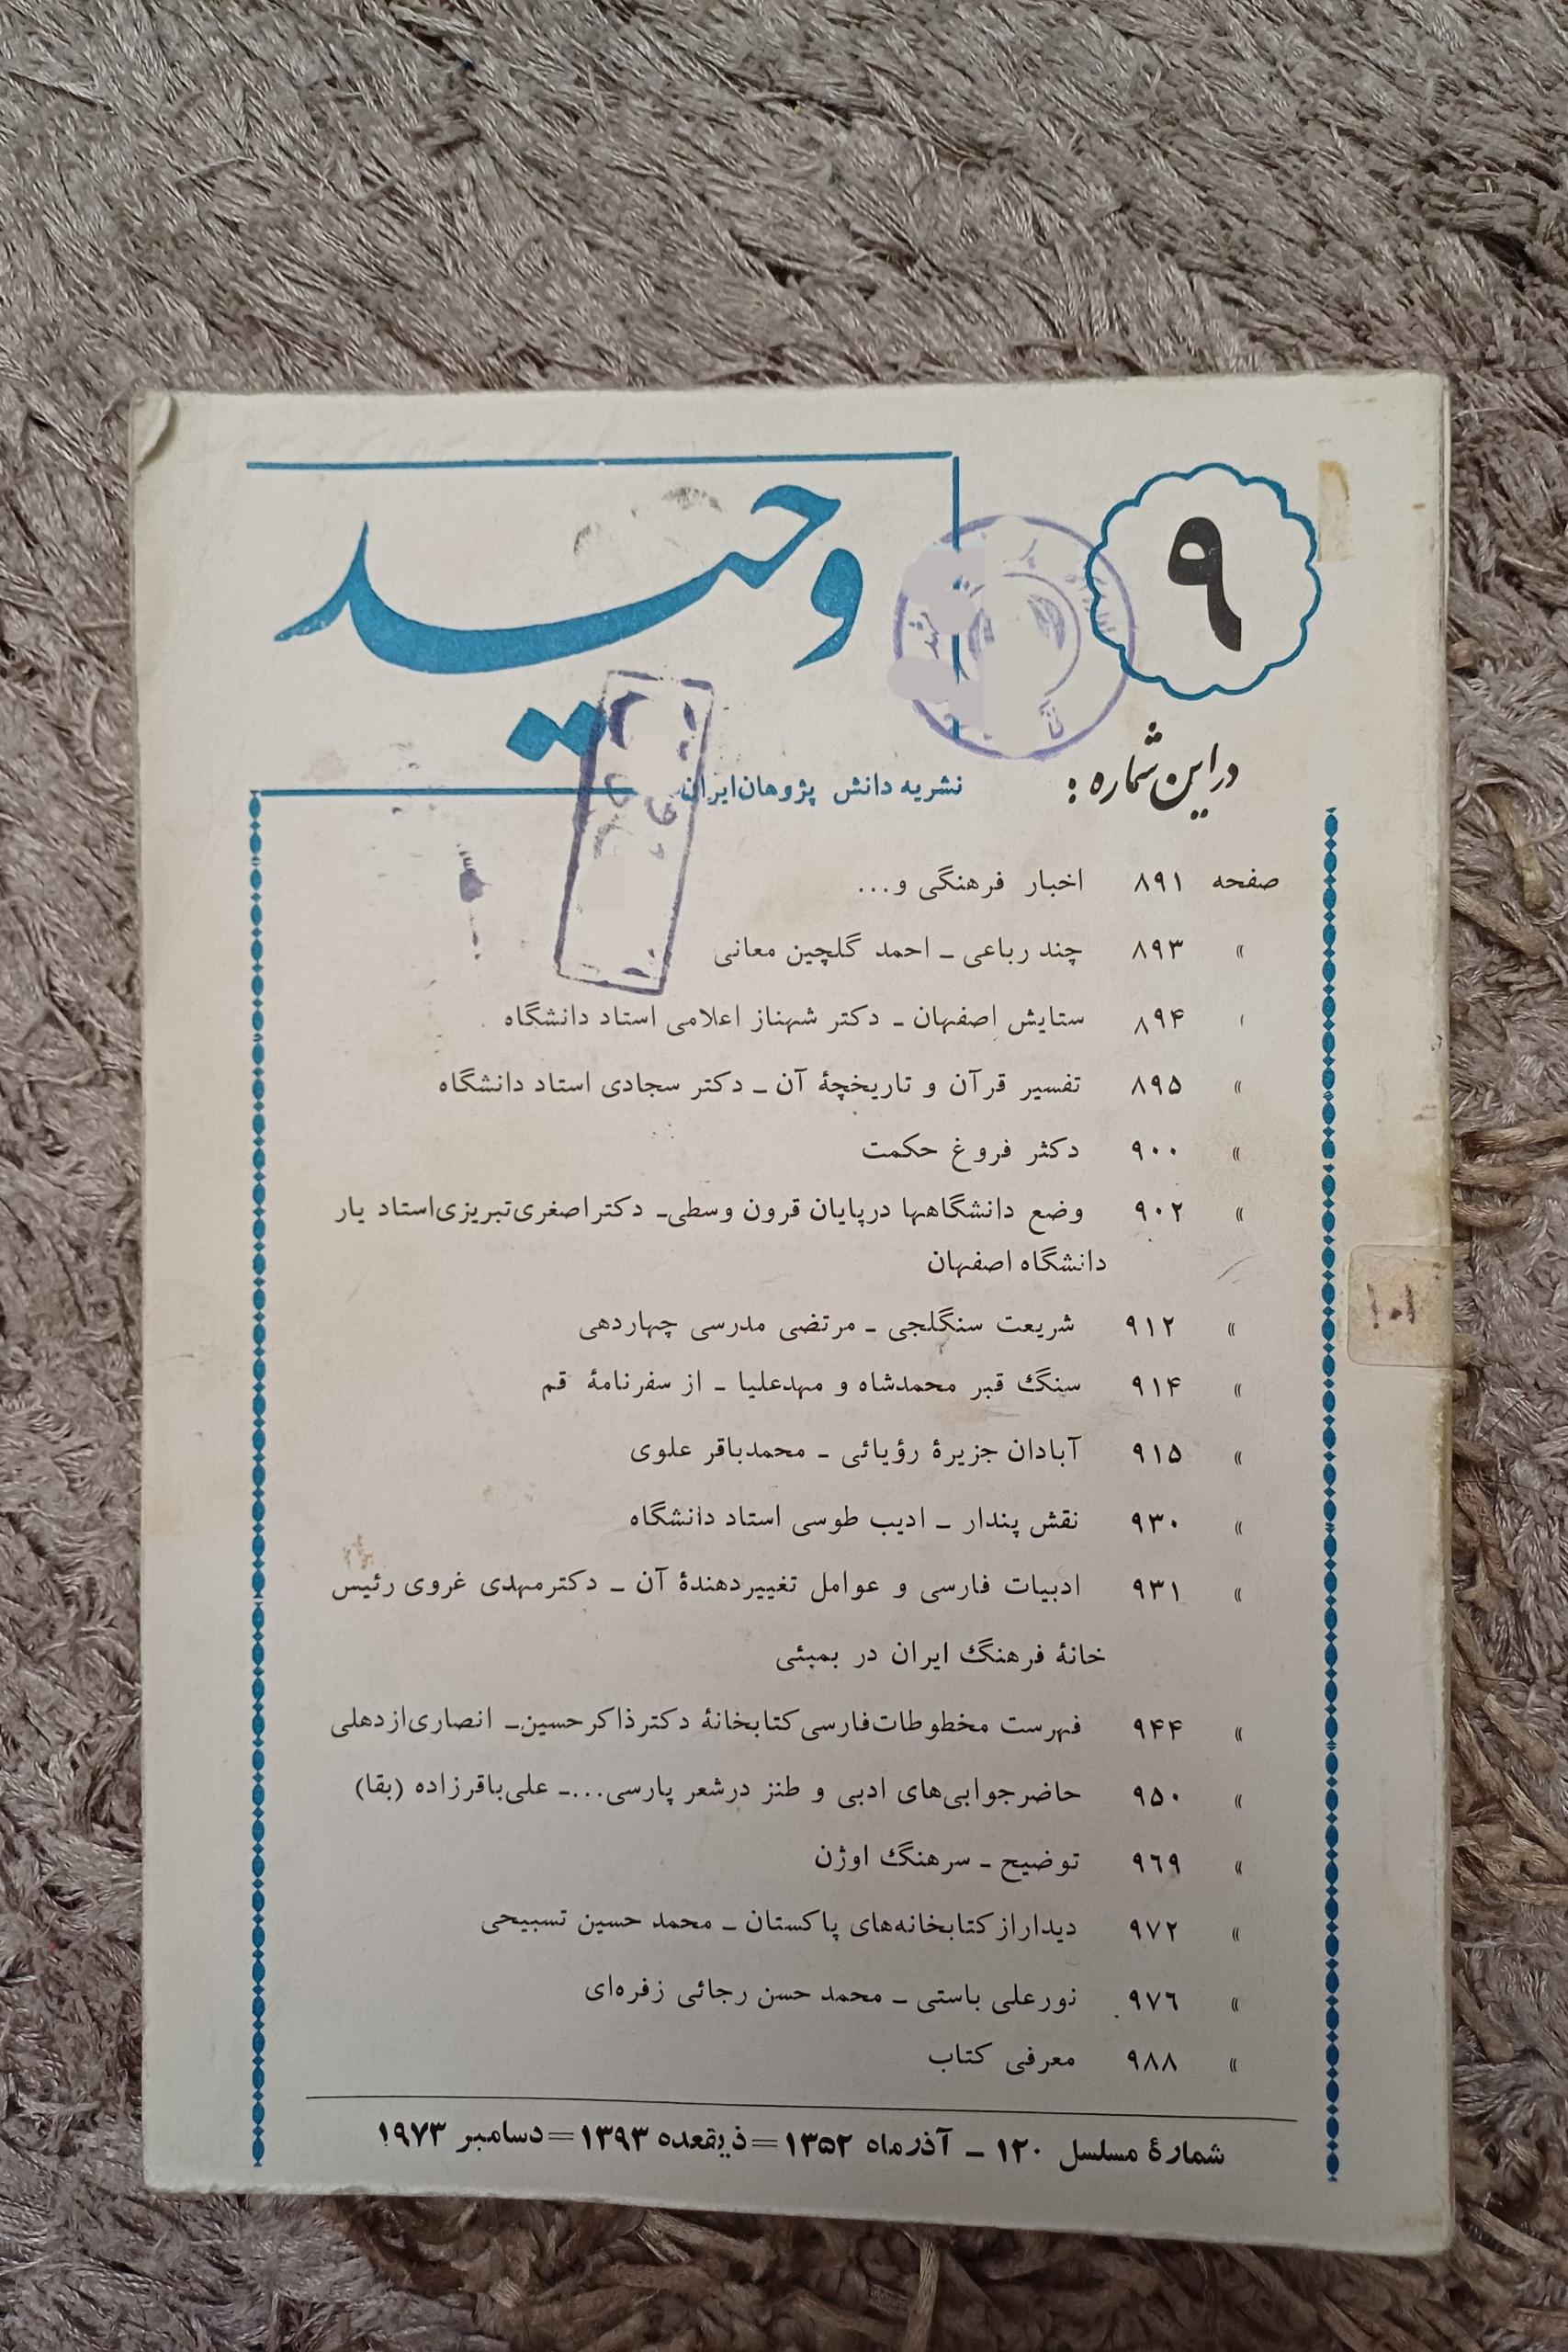 ۹
وحید
نشریه دانش پژوهان ایران
در این شماره :
صفحه ۸۹۱ اخبار فرهنگی و...
» ۸۹۳ چند رباعی ـ احمد گلچین معانی
۸۹۴ ستایش اصفهان ـ دکتر شهناز اعلامی استاد دانشگاه
» ۸۹۵ تفسیر قرآن و تاریخچهٔ آن ـ دکتر سجادی استاد دانشگاه
» ۹۰۰ دکتر فروغ حکمت
» ۹۰۲ وضع دانشگاهها درپایان قرون وسطی ـ دکتر اصغری تبریزی استاد یار
دانشگاه اصفهان
» ۹۱۲ شریعت سنگلجی ـ مرتضی مدرسی چهاردهی
» ۹۱۴ سنگ قبر محمدشاه و مهدعلیا ـ از سفرنامهٔ قم
» ۹۱۵ آبادان جزیرهٔ رؤیائی ـ محمدباقر علوی
» ۹۳۰ نقش پندار ـ ادیب طوسی استاد دانشگاه
» ۹۳۱ ادبیات فارسی و عوامل تغییردهندهٔ آن ـ دکتر مهدی غروی رئیس
خانهٔ فرهنگ ایران در بمبئی
» ۹۴۴ فهرست مخطوطات فارسی کتابخانهٔ دکتر ذاکر حسین ـ انصاری از دهلی
» ۹۵۰ حاضرجوابی‌های ادبی و طنز درشعر پارسی...ـ علی باقرزاده (بقا)
» ۹۶۹ توضیح ـ سرهنگ اوژن
» ۹۷۲ دیدار از کتابخانه‌های پاکستان ـ محمد حسین تسبیحی
» ۹۷۶ نورعلی باستی ـ محمد حسن رجائی زفره‌ای
» ۹۸۸ معرفی کتاب
شمارهٔ مسلسل ۱۲۰ ـ آذرماه ۱۳۵۲=ذیقعده ۱۳۹۳=دسامبر ۱۹۷۳